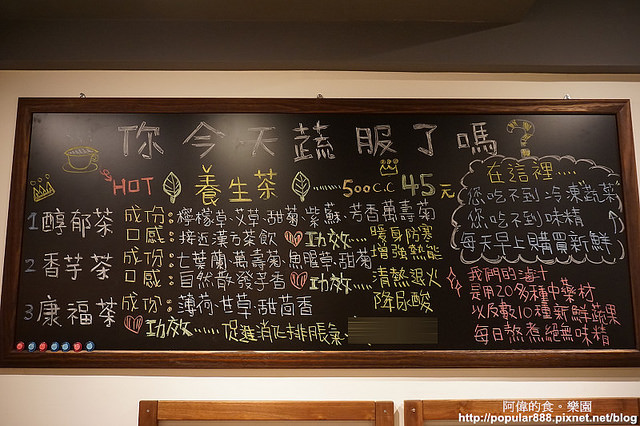 你今天蔬服了嗎?
HOT 養生茶……500c.c 45元
1醇郁茶 成份:檸檬草、艾草、甜菊、紫蘇、芳香萬壽菊
口感:接近漢方茶飲 功效…暖身防寒 增強熱能
2香芋茶 成份:七葉蘭、萬壽菊、魚腥草、甜菊
口感:自然散發芋香 功效…清熱退火 降尿酸
3康福茶 成份:薄荷、世草、甜茴香
功效……促進消化排脹氣
在這裡....
您吃不到冷凍蔬菜
您吃不到味精
每天早上購買新鮮
我們的滷汁
是用20多種中藥材
以及數10種新鮮蔬果
每日熬煮絕無味精
阿偉的食。樂園
http://popular888.pixnet.net/blog